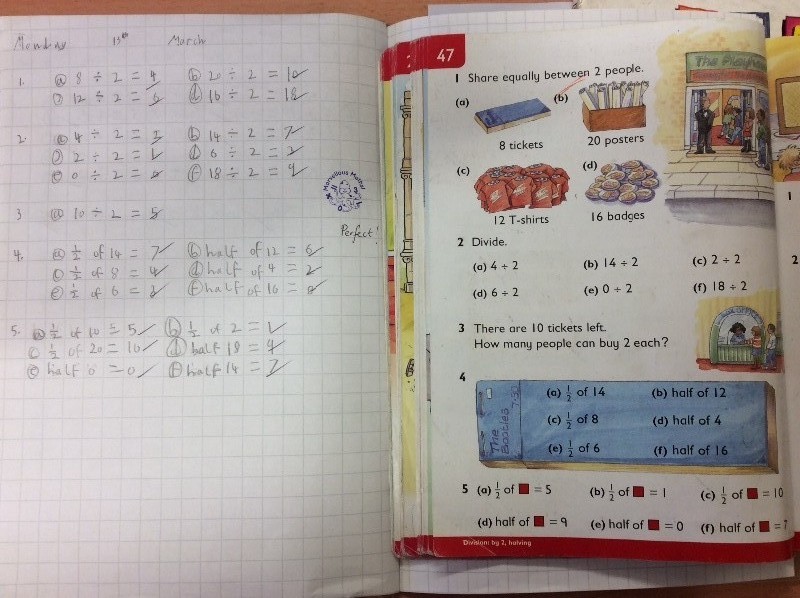 Monday 13th March
1. (a) 8 ÷ 2 = 4 (b) 20 ÷ 2 = 10
(c) 12 ÷ 2 = 6 (d) 16 ÷ 2 = 18
2. (a) 4 ÷ 2 = 2 (b) 14 ÷ 2 = 7
(c) 2 ÷ 2 = 1 (d) 6 ÷ 2 = 3
(e) 0 ÷ 2 = 0 (f) 18 ÷ 2 = 9
Marvellous Maths
Perfect!
3 (a) 10 ÷ 2 = 5
4. (a) ½ of 14 = 7 (b) half of 12 = 6
(c) ½ of 8 = 4 (d) half of 4 = 2
(e) ½ of 6 = 3 (f) half of 16 = 8
5. (a) ½ of 10 = 5 (b) ½ of 2 = 1
(c) ½ of 20 = 10 (d) half 18 = 9
(e) half 0 = 0 (f) half 14 = 7
47
1 Share equally between 2 people.
(a) (b)
8 tickets 20 posters
(c) (d)
12 T-shirts 16 badges
The Playhou
2 Divide.
(a) 4 ÷ 2 (b) 14 ÷ 2 (c) 2 ÷ 2
(d) 6 ÷ 2 (e) 0 ÷ 2 (f) 18 ÷ 2
3 There are 10 tickets left.
How many people can buy 2 each?
BOX OFFICE
4
(a) ½ of 14 (b) half of 12
(c) ½ of 8 (d) half of 4
(e) ½ of 6 (f) half of 16
The Bootles 7:30
5 (a) ½ of ■ = 5 (b) ½ of ■ = 1 (c) ½ of ■ = 10
(d) half of ■ = 9 (e) half of ■ = 0 (f) half of ■ = 7
Division: by 2, halving
1
2